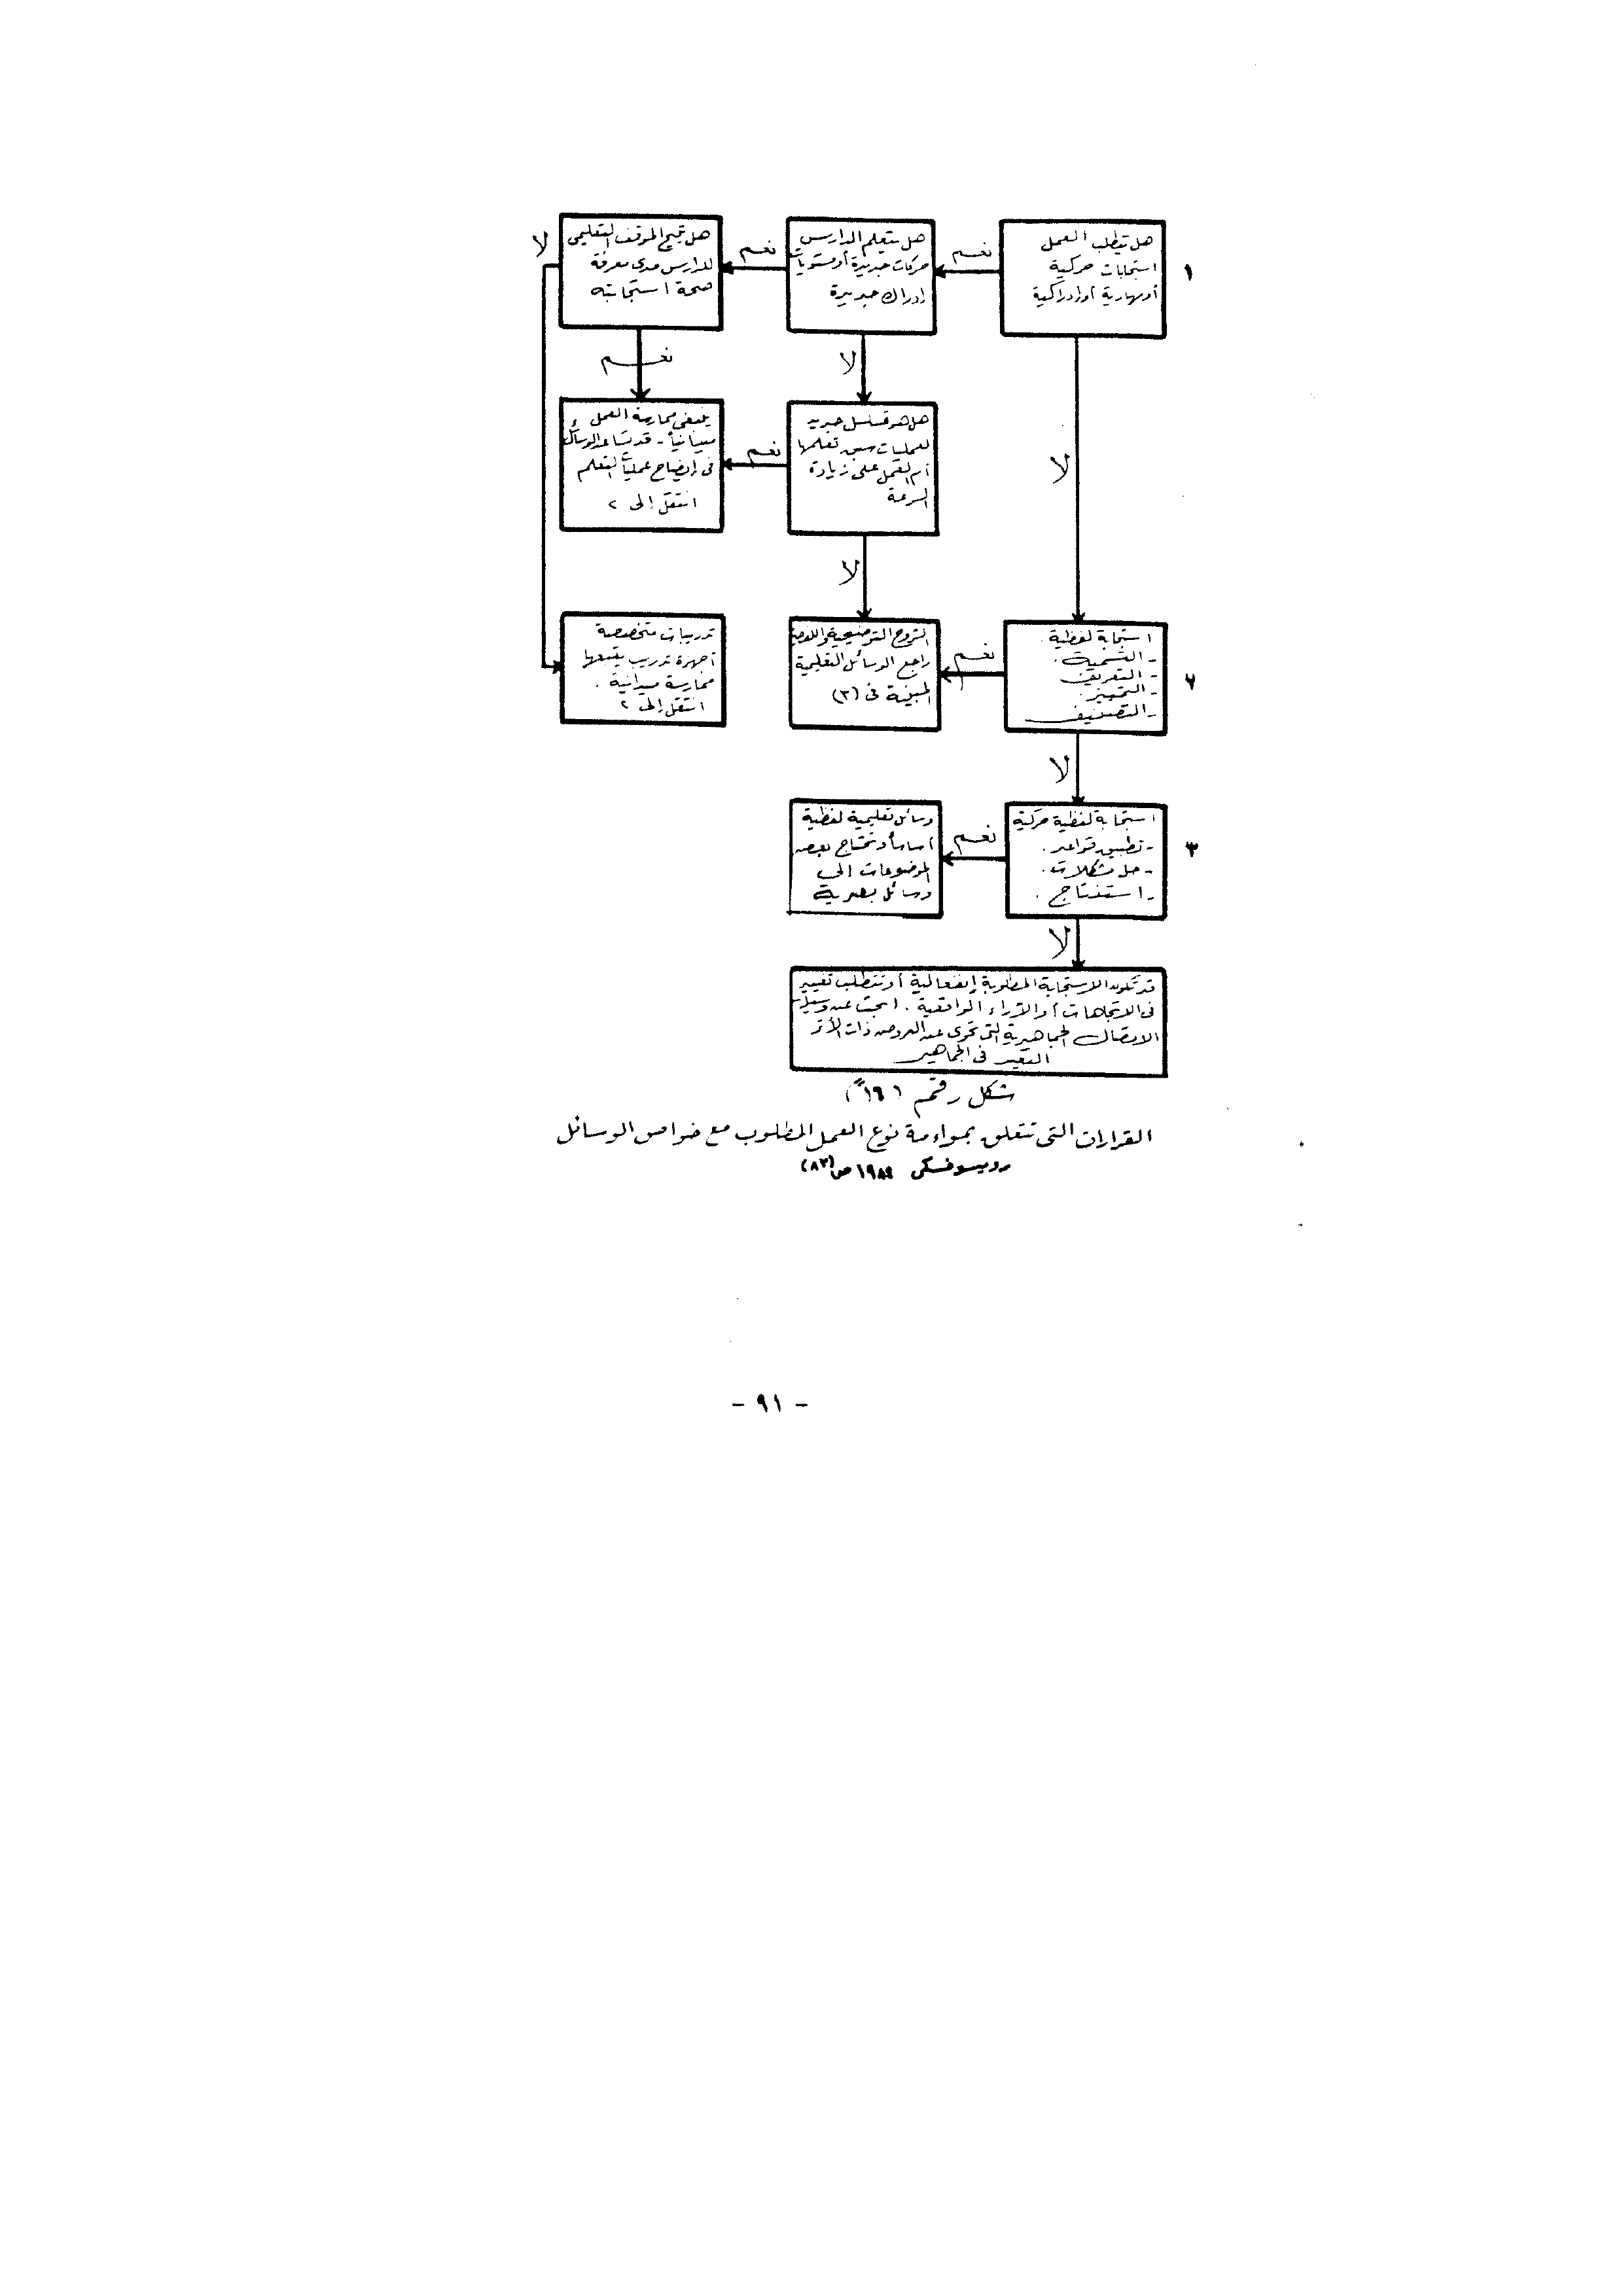 ١
هل يتطلب العمل
استجابات حركية
أو مهارية أو إدراكية
نعم
هل يتعلم الدارس
حركات جديدة أو مستويات
إدراك جديدة
نعم
هل يتيح الموقف التعليمى
للدارس مدى معرفة
صحة استجابته
لا
لا
لا
نعم
هل هو تسلسل جديد
لعمليات سبق تعلمها
أم العمل على زيادة
السرعة
نعم
ينبغى ممارسة العمل
ميدانياً - قد تساعد الوسائل
فى إيضاح عمليات التعلم
انتقل إلى ٢
لا
٢
استجابة لفظية .
- التسمية .
- التعريف
- التمييز .
- التصنيف
نعم
الشروح التوضيحية
راجع الوسائل التعليمية
المبينة فى (٣)
تدريبات متخصصة
أجهزة تدريب يتبعها
ممارسة ميدانية .
انتقل إلى ٢
لا
٣
استجابة لفظية حركية
- تطبيق قواعد .
- حل مشكلات .
- استنتاج .
نعم
وسائل تعليمية لفظية
أساساً وتحتاج بعض
الموضوعات إلى
وسائل بصرية
لا
قد تكون الاستجابة المطلوبة إنفعالية أو تتطلب تغيير
فى الاتجاهات أو الآراء الواقعية . ابحث عن وسيلة
الاتصال الجماهيرية التى تحوى عند العروض ذات الأثر
فى الجماهير
شكل رقم (١٦)
القرارات التى تتعلق بمواءمة نوع العمل المطلوب مع خواص الوسائل
روميسوفسكى ١٩٨٤ ص (٨٢)
- ٩١ -